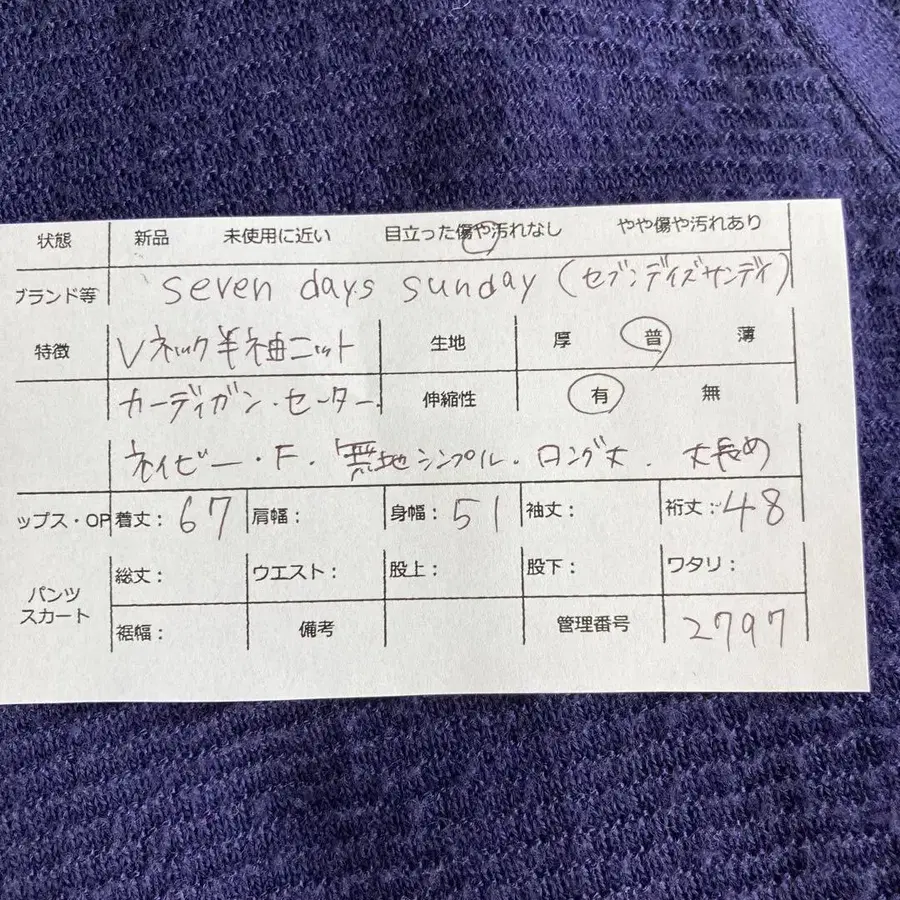 状態 新品 未使用に近い 目立った傷や汚れなし やや傷や汚れあり
ブランド等 seven days sunday (セブンデイズサンデイ)
特徴 Vネック半袖ニット 生地 厚 普 薄
カーディガン・セーター. 伸縮性 有 無
ネイビー・F. 無地シンプル. ロング丈. 丈長め
ップス・OP 着丈: 67 肩幅: 身幅: 51 袖丈: 裄丈: 48
パンツ スカート 総丈: ウエスト: 股上: 股下: ワタリ:
裾幅: 備考 管理番号 2797